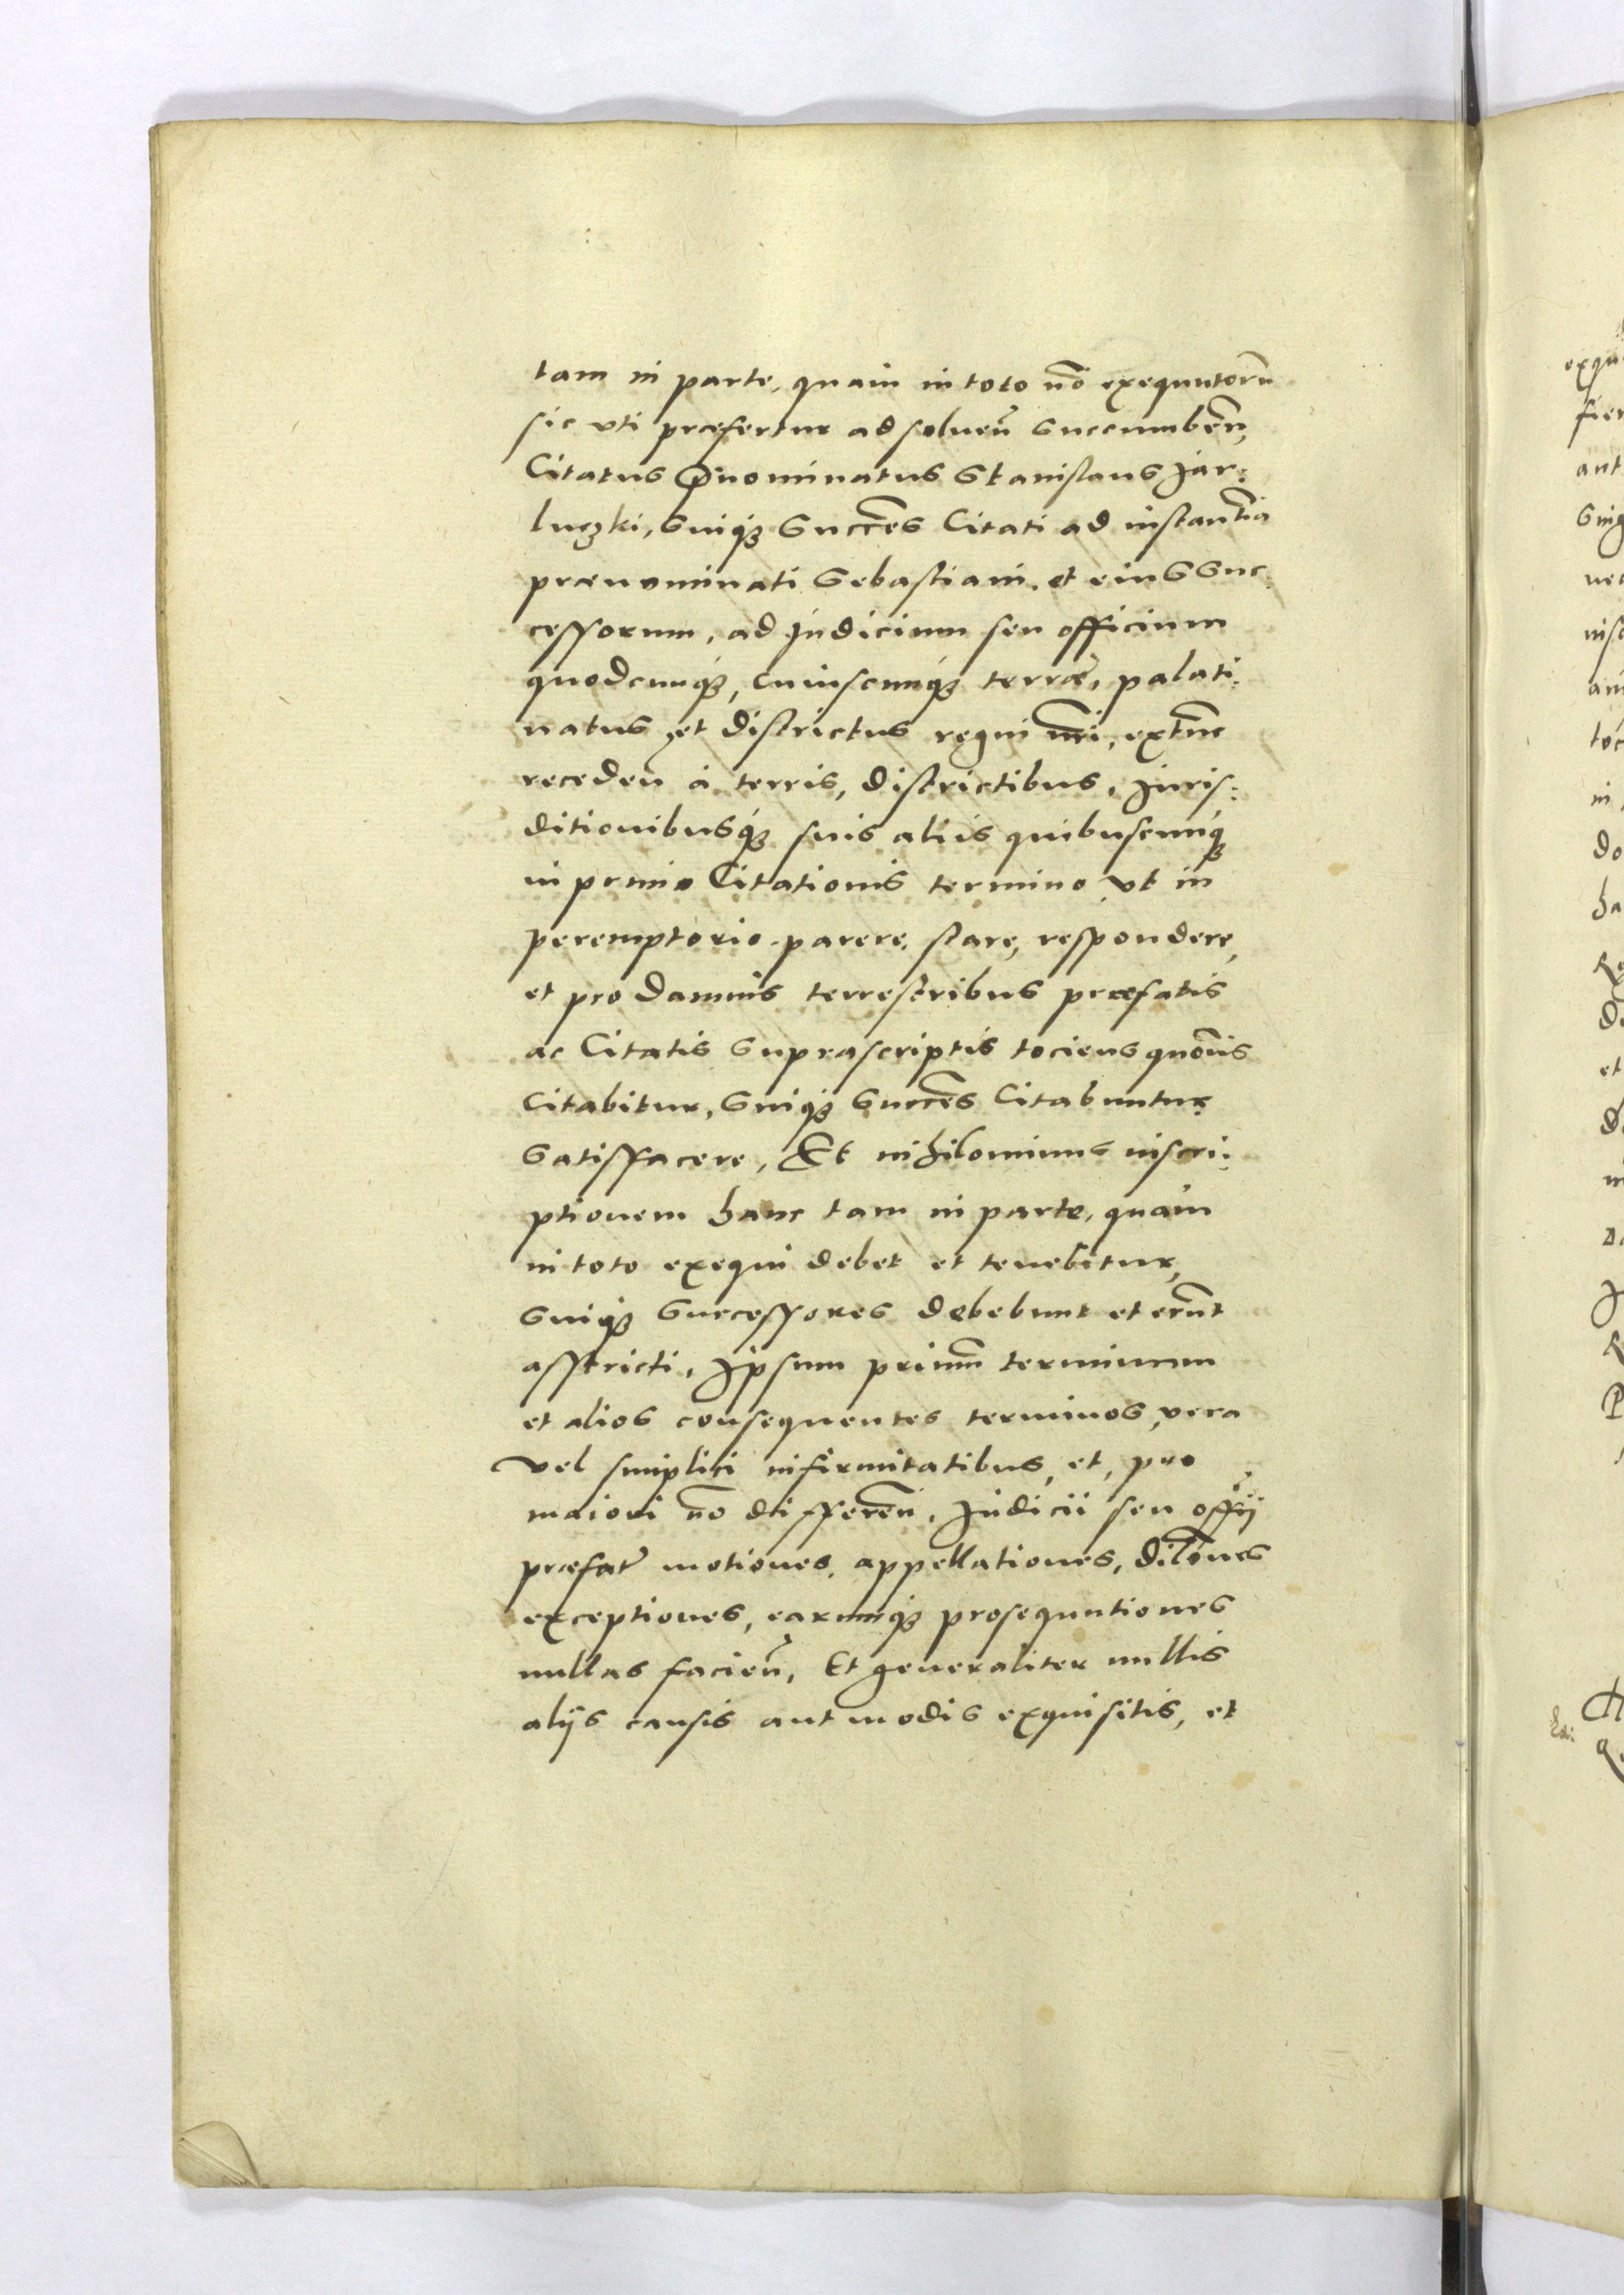 tam in parte, quam in toto nō exequutorū
sic vti præfertur ad soluen̄ succumben̄,
Citatus p̄nominatus Stanislaus Jar:
luczki, suiq3 succēs Citati ad instantiā
prænominati Sebastiani et eius suc:
cessorum, ad Judicium seu officium
quodcunq3, cuiuscunq3 terræ, palati:
natus, et districtus regni nr̄i, extūc
receden̄ à terris, districtibus, Juris:
ditionibusq3 suis aliis quibuscunq3
in primo Citationis termino, vt in
peremptorio parere, stare, respondere,
et pro damnis terrestribus præfatis
ac Citatis suprascriptis tociens quōens
citabitur, suiq3 succēs Citabuntur
satisffacere, Et nihilominus inscri:
ptionem hanc tam in parte, quam
in toto exequi debet et tenebitur,
suiq3 successores debebunt et erūt
asstricti, Ipsum primū terminum
et alios consequentes terminos, vera
vel simplici infirmitatibus, et, pro
maiori nō differen̄, Judicii seu offij
præfat̄ motiones, appellationes, dilōnes
exceptiones, earumq3 prosequutiones
nullas facien̄, Et generaliter nullis
alijs causis aut modis exquisitis, et